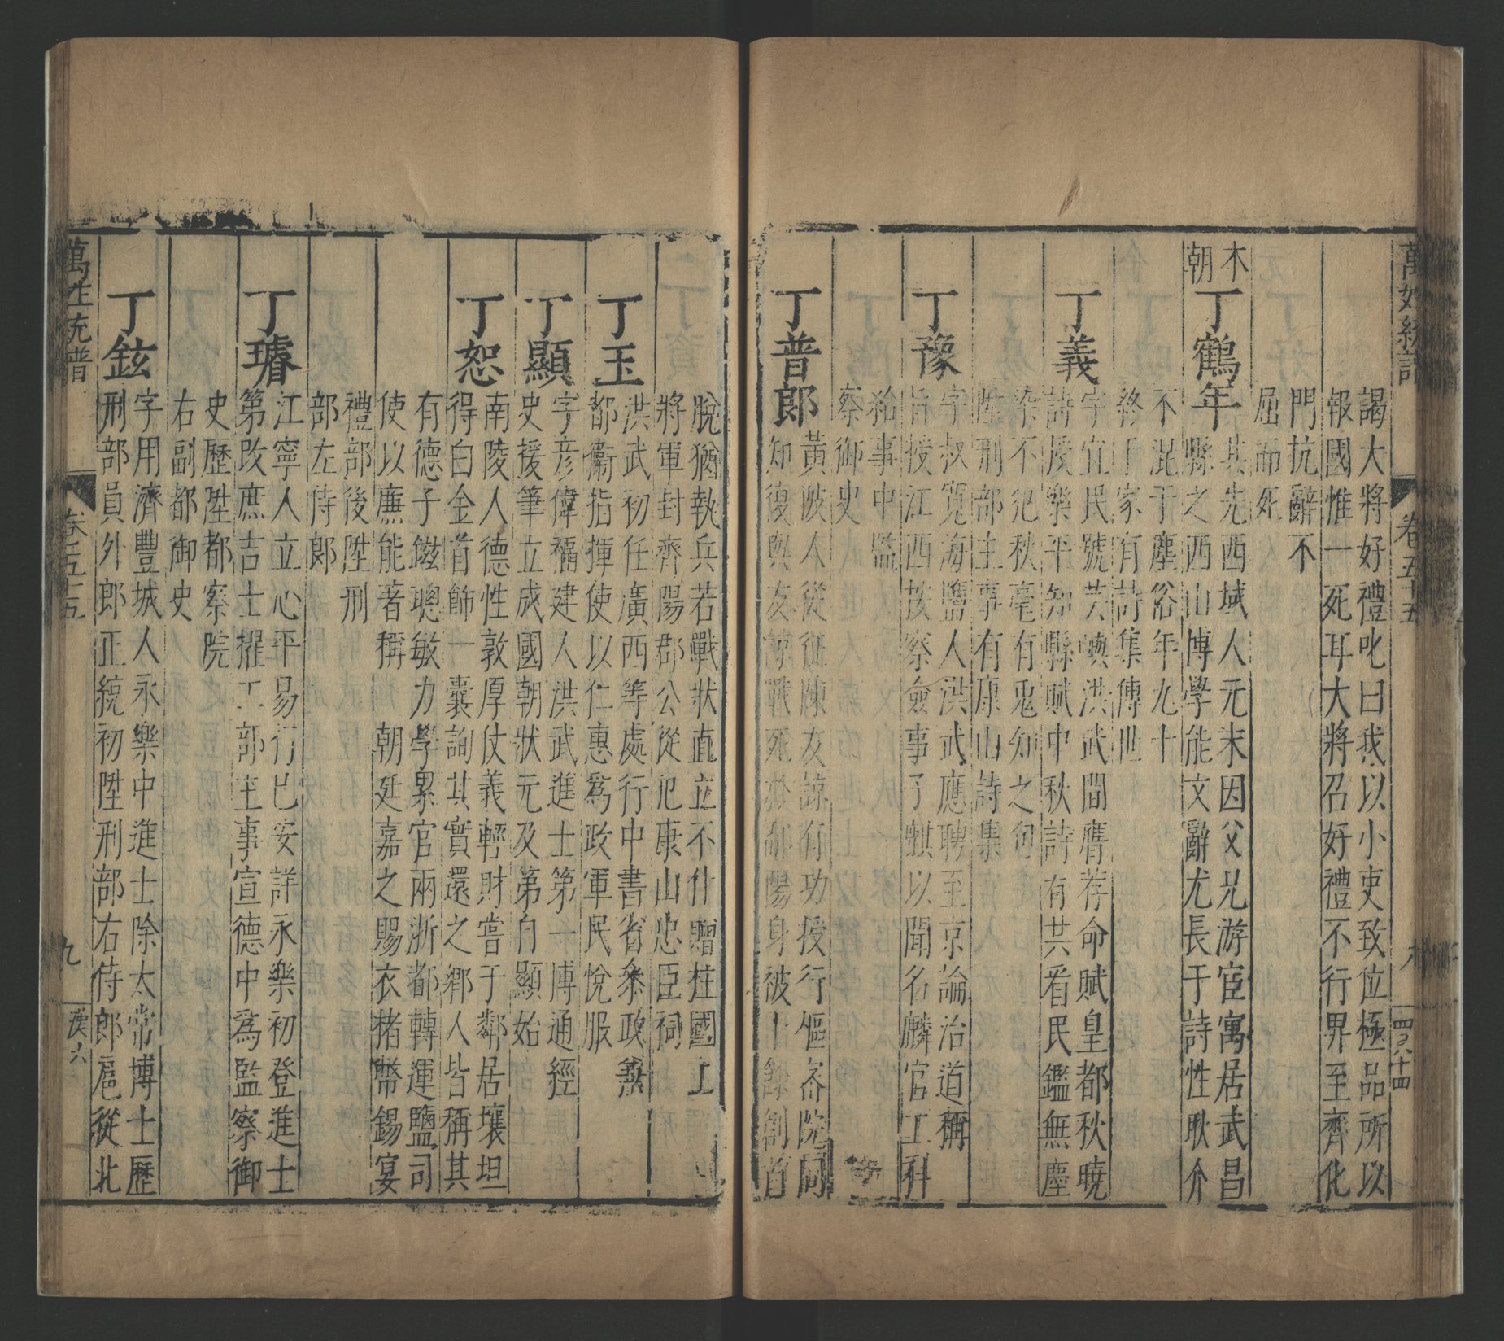 萬姓統譜 卷五十五 八 四八十四
謁大將好禮叱曰我以小吏致位極品所以
報國惟一死耳大將召好禮不行畀至齊化
門抗辭不
屈而死
本朝
丁鶴年
其先西域人元末因父兄游宦寓居武昌
縣之西山博學能文辭尤長于詩性耿介
不混于塵俗年九十
終于家有詩集傳世
丁義
字宜民號芸嶼洪武間膺荐命賦皇都秋曉
詩授樂平知縣賦中秋詩有共看民鑑無塵
染不犯秋毫有兎知之句
陞刑部主事有康山詩集
丁豫
字叔寬海鹽人洪武應聘至京論治道稱
旨授江西按察僉事子麒以聞名麟官工科
給事中監
察御史
丁普郎
黃陂人從征陳友諒有功授行樞密院同
知復與友諒戰死於鄱陽身被十餘創首
脫猶執兵若戰狀直立不仆贈柱國上
將軍封齊陽郡公從祀康山忠臣祠
丁玉
洪武初任廣西等處行中書省叅政兼
都衞指揮使以仁惠為政軍民悅服
丁顯
字彥偉福建人洪武進士第一博通經
史援筆立成國朝狀元及第自顯始
丁恕
南陵人德性敦厚仗義輕財嘗于鄰居壤坦
得白金首飾一囊詢其實還之鄉人皆稱其
有德子鎡聰敏力學累官兩浙都轉運鹽司
使以廉能著稱 朝廷嘉之賜衣楮幣錫宴
禮部後陞刑
部左侍郎
丁璿
江寧人立心平易行已安詳永樂初登進士
第改庶吉士擢工部主事宣德中為監察御
史歷陞都察院
右副都御史
丁鉉
字用濟豐城人永樂中進士除太常博士歷
刑部員外郎正統初陞刑部右侍郎扈從北
萬姓統譜 卷五十五 九